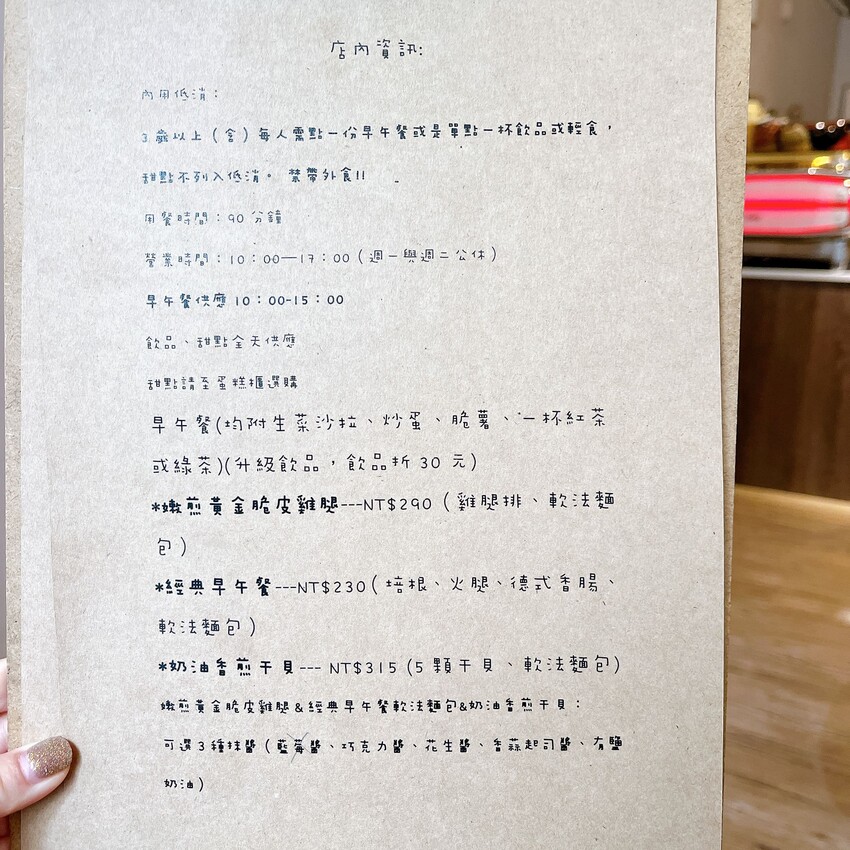 店內資訊:
內用低消：
3歲以上（含）每人需點一份早午餐或是單點一杯飲品或輕食，
甜點不列入低消。 禁帶外食!!
用餐時間：90分鐘
營業時間：10：00—17：00（週一與週二公休）
早午餐供應10：00-15：00
飲品、甜點全天供應
甜點請至蛋糕櫃選購
早午餐(均附生菜沙拉、炒蛋、脆薯、一杯紅茶
或綠茶)(升級飲品，飲品折30元)
*嫩煎黃金脆皮雞腿---NT$290（雞腿排、軟法麵
包）
*經典早午餐---NT$230(培根、火腿、德式香腸、
軟法麵包）
*奶油香煎干貝--- NT$315 (5顆干貝、軟法麵包)
嫩煎黃金脆皮雞腿&經典早午餐軟法麵包&奶油香煎干貝：
可選3種抹醬（藍莓醬、巧克力醬、花生醬、香蒜起司醬、有鹽
奶油）